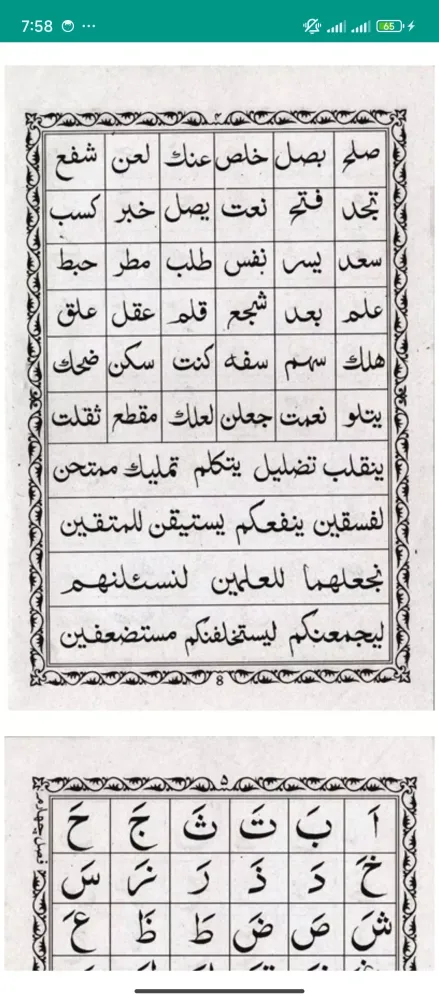 7:58 ... 65
٤
صلح بصل خلص عنك لعن شفع
تجد فتح نعت يصل خبر كسب
سعد يسر نفس طلب مطر حبط
علم بعد شجع قلم عقل علق
هلك سهم سفه كنت سكن ضحك
يتلو نعمت جعلن لعلك مقطع ثقلت
ينقلب تضليل يتكلم تمليك ممتحن
لفسقين ينفعكم يستيقن للمتقين
نجعلهما للعلمين لنسئلنهم
ليجمعنكم ليستخلفنكم مستضعفين
8
۵
فصل چهارم
اَ بَ تَ ثَ جَ حَ
خَ دَ ذَ رَ زَ سَ
شَ صَ ضَ طَ ظَ عَ